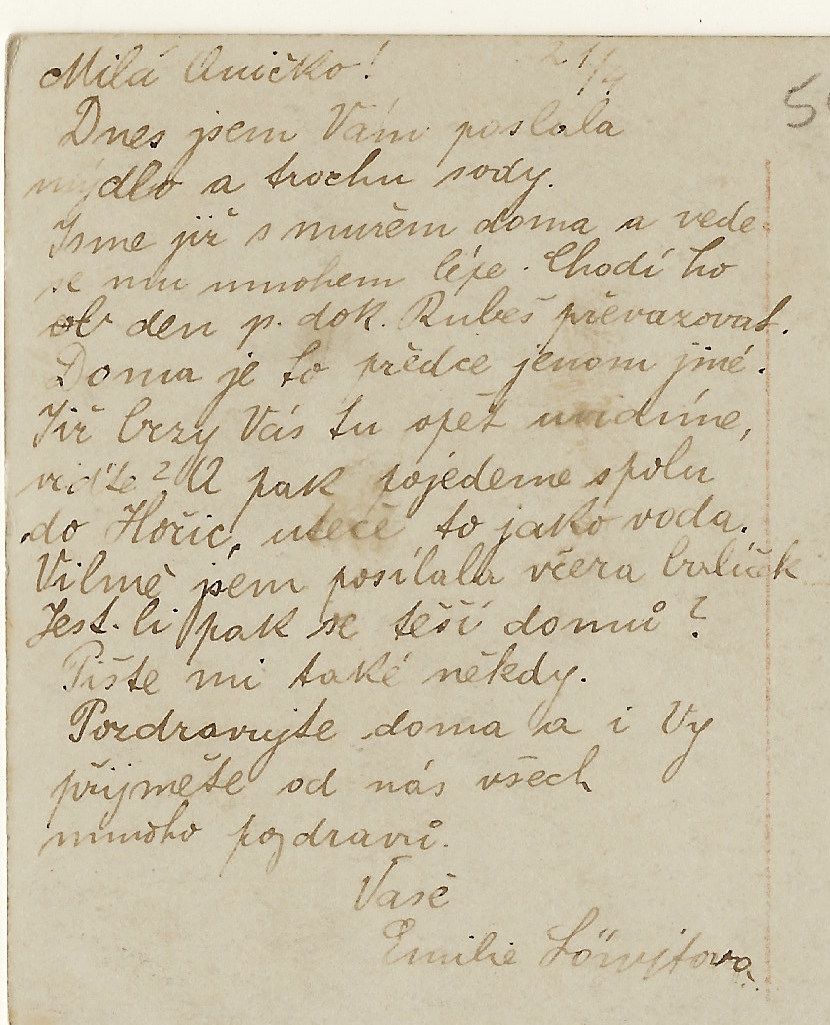 Milá Aničko! 21/4
Dnes jsem Vám poslala
mýdlo a trochu sody.
Jsme již s mužem doma a vede
se mu mnohem lépe. Chodí ho
ob den p. dok. Rubeš převazovat.
Doma je to předce jenom jiné.
Již brzy Vás tu opět uvidíme,
viďte? A pak pojedeme spolu
do Hořic, uteče to jako voda.
Vilmě jsem posílala včera balíček
Jest-li pak se těší domů?
Pište mi také někdy.
Pozdravujte doma a i Vy
přijměte od nás všech
mnoho pozdravů.
Vaše
Emilie